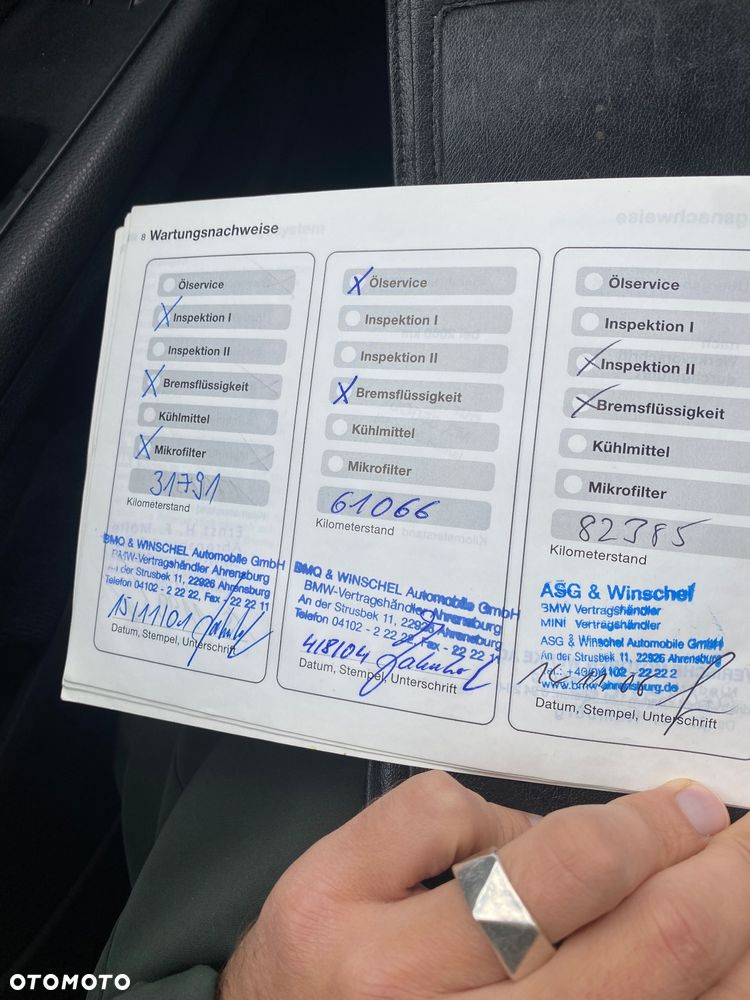 8 Wartungsnachweise
Ölservice
Inspektion I
Inspektion II
Bremsflüssigkeit
Kühlmittel
Mikrofilter
31791
Kilometerstand
BMQ & WINSCHEL Automobile GmbH
BMW-Vertragshändler Ahrensburg
An der Strusbek 11, 22926 Ahrensburg
Telefon 04102 - 2 22 22, Fax - 22 22 11
15/11/01
Datum, Stempel, Unterschrift
Ölservice
Inspektion I
Inspektion II
Bremsflüssigkeit
Kühlmittel
Mikrofilter
61066
Kilometerstand
BMQ & WINSCHEL Automobile GmbH
BMW-Vertragshändler Ahrensburg
An der Strusbek 11, 22926 Ahrensburg
Telefon 04102 - 2 22 22, Fax - 22 22 11
4/8/04
Datum, Stempel, Unterschrift
Ölservice
Inspektion I
Inspektion II
Bremsflüssigkeit
Kühlmittel
Mikrofilter
82385
Kilometerstand
ASG & Winschel
BMW Vertragshändler
MINI Vertragshändler
ASG & Winschel Automobile GmbH
An der Strusbek 11, 22926 Ahrensburg
Tel.: 4102 - 22 22 2
www.bmw-ahrensburg.de
Datum, Stempel, Unterschrift
OTOMOTO